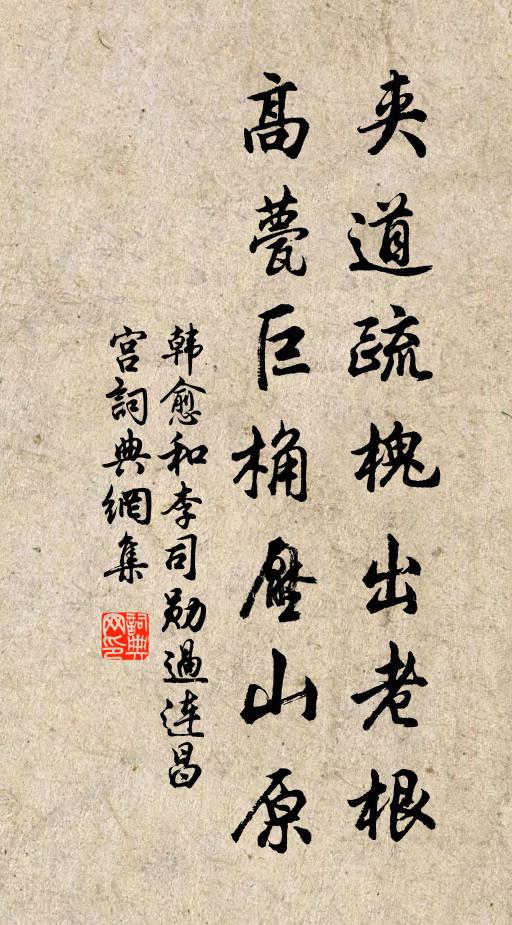 夹道疏槐出老根
高甍巨桷壓山原
韩愈和李司勋過连昌
宫詞典網集
詞典网印